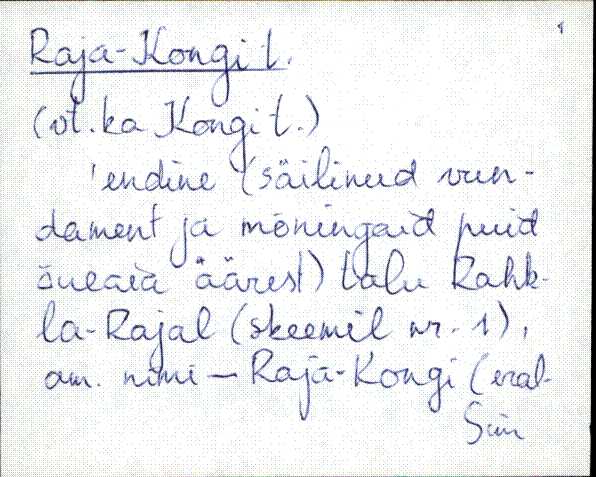 Raja-Kongi t.
(vt. ka Kongi t.)
'endine (säilinud vun-
dament ja mõningaid puid
õueaia äärest) talu Rahk-
la-Rajal (skeemil nr. 1),
am. nimi — Raja-Kongi (eral-